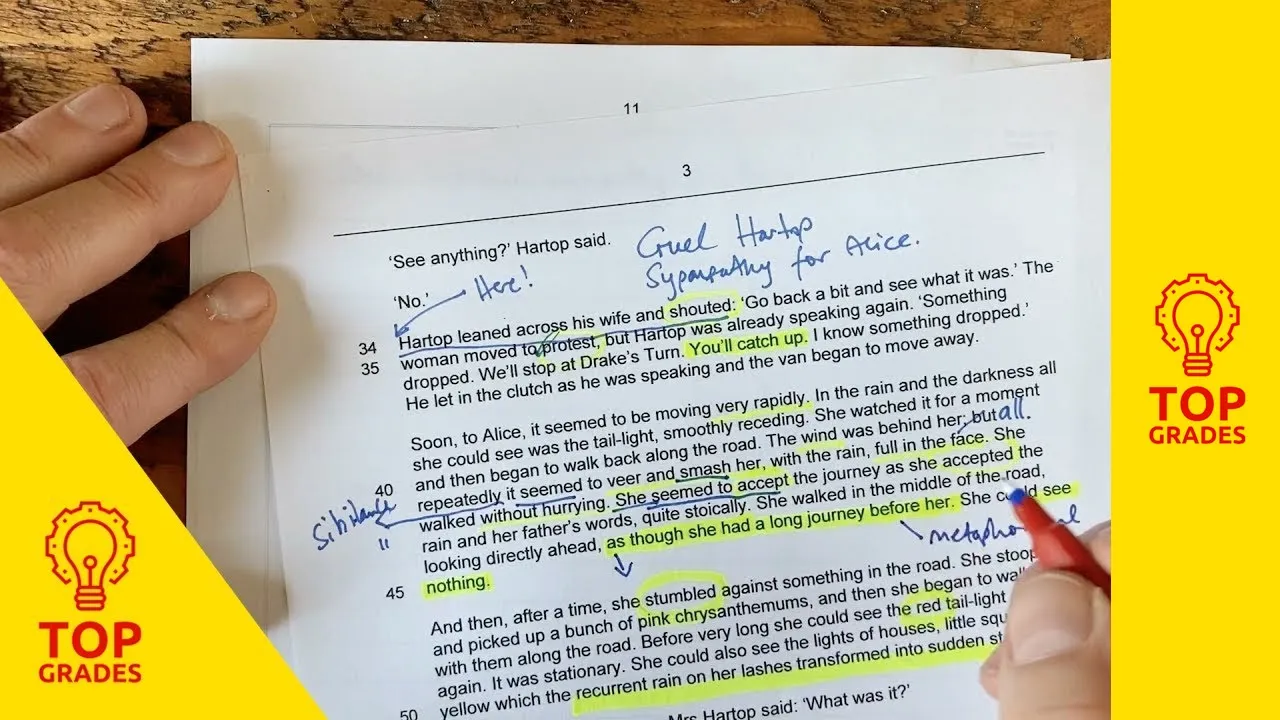 11
3
'See anything?' Hartop said.
Cruel Hartop
Sypmpathy for Alice.
'No.'
Here!
34 Hartop leaned across his wife and shouted: 'Go back a bit and see what it was.' The
35 woman moved to protest, but Hartop was already speaking again. 'Something
dropped. We'll stop at Drake's Turn. You'll catch up. I know something dropped.'
He let in the clutch as he was speaking and the van began to move away.
Soon, to Alice, it seemed to be moving very rapidly. In the rain and the darkness all
she could see was the tail-light, smoothly receding. She watched it for a moment
and then began to walk back along the road. The wind was behind her; but all.
40 repeatedly it seemed to veer and smash her, with the rain, full in the face. She
walked without hurrying. She seemed to accept the journey as she accepted the
rain and her father's words, quite stoically. She walked in the middle of the road,
looking directly ahead, as though she had a long journey before her. She could see
45 nothing.
And then, after a time, she stumbled against something in the road. She
and picked up a bunch of pink chrysanthemums, and then she began to
with them along the road. Before very long she could see the red tail-light
again. It was stationary. She could also see the lights of houses, little
50 yellow which the recurrent rain on her lashes transformed into sudden
Mrs Hartop said: 'What was it?'
TOP
GRADES
TOP
GRADES
TOP
GRADES